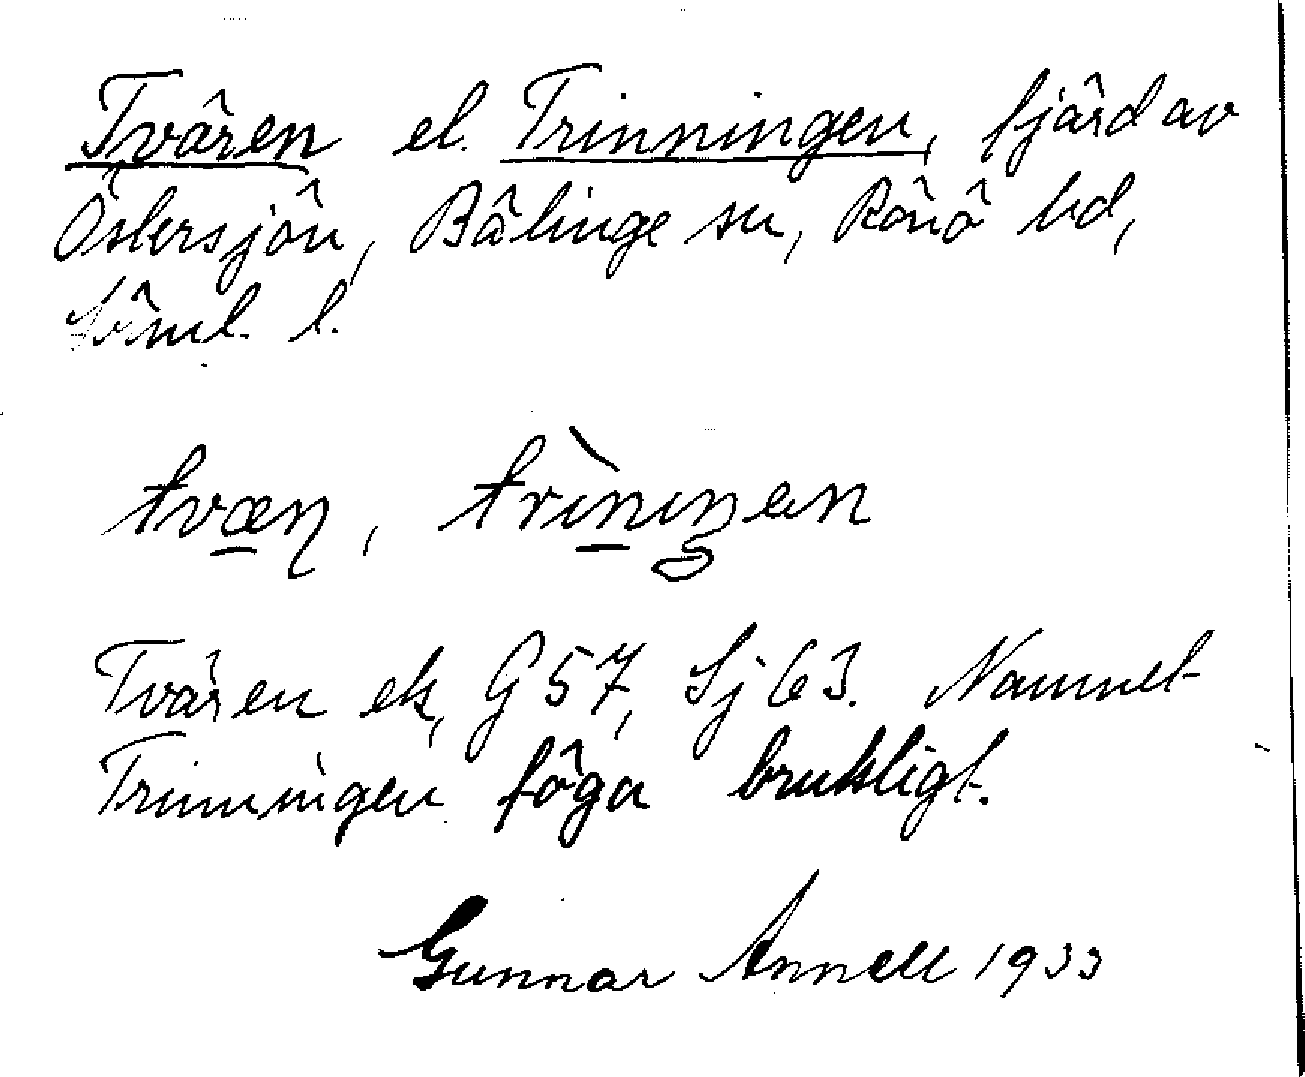 Tvären el. Trinningen, fjärd av
Östersjön, Bälinge sn, Rönö hd,
Söml. l.
tvæn, trìniŋen
Tvären ek, G 57, Sj 63. Namnet
Trinningen föga brukligt.
Gunnar Annell 1933